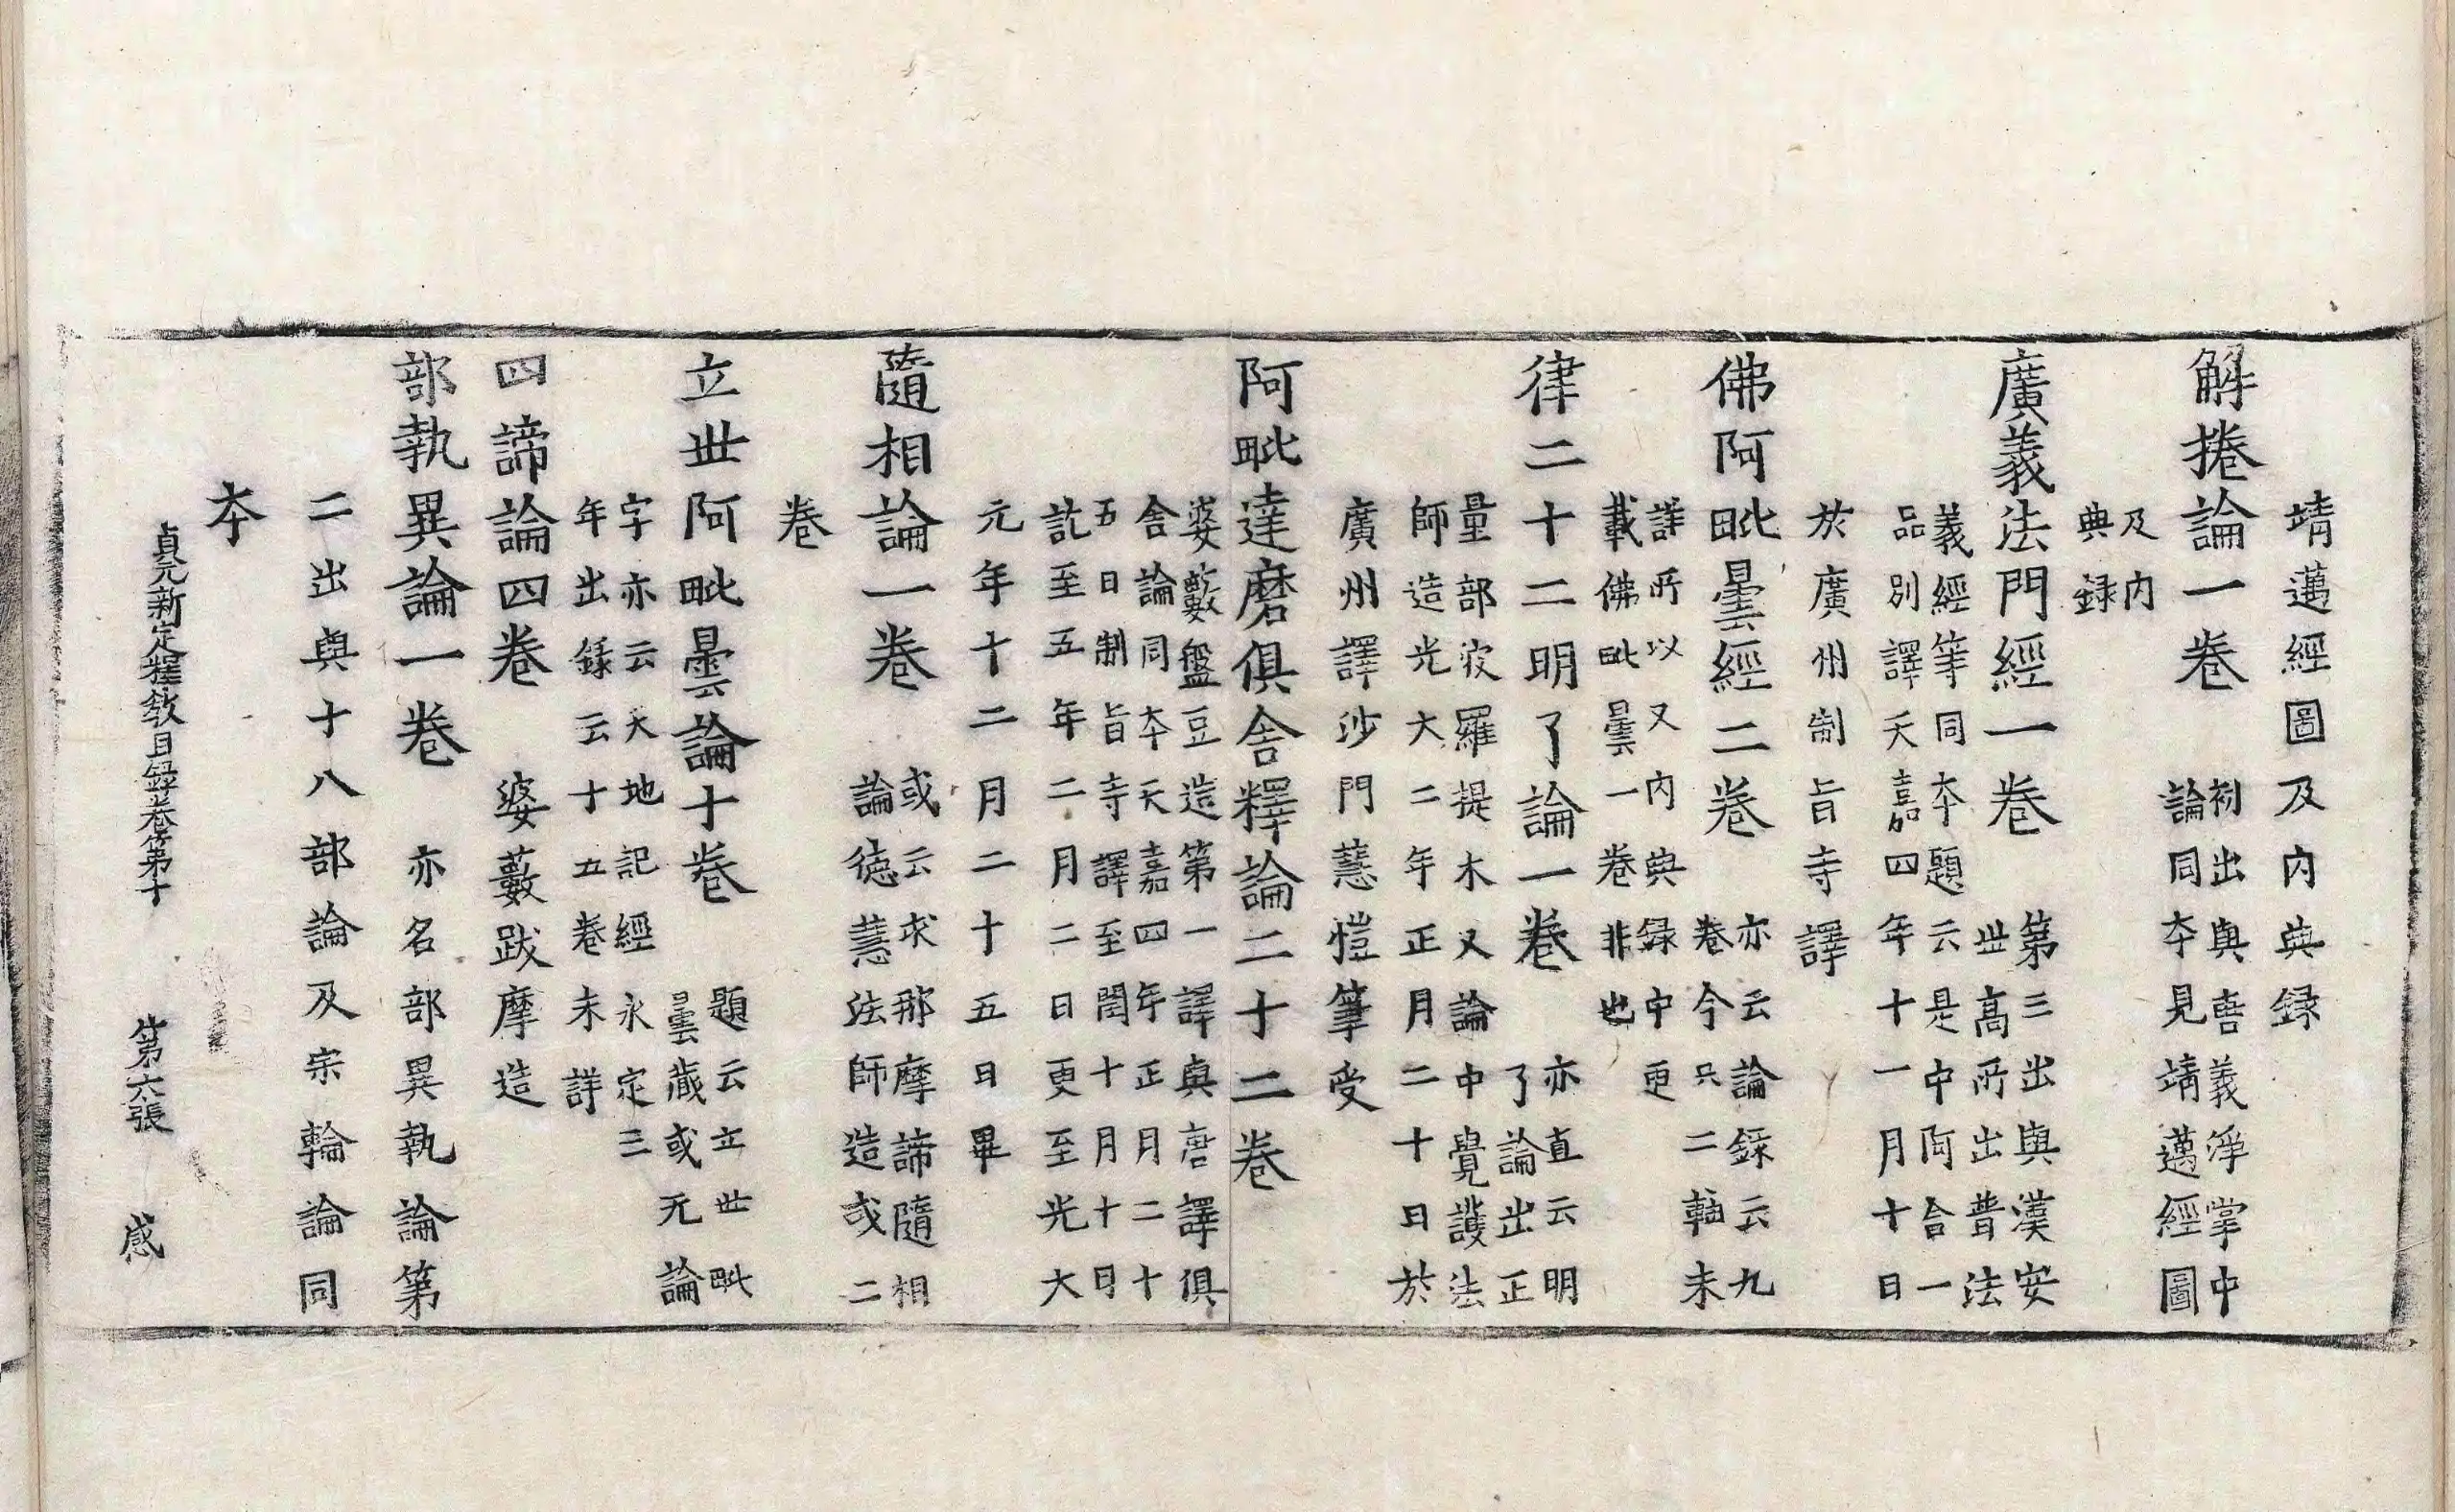 靖邁經圖及内典録
解捲論一卷 初出與唐義淨掌中
論同夲見靖邁經圖
及内
典録
廣義法門經一卷 第三出與漢安
世高所出普法
義經等同夲題云是中阿含一
品別譯天嘉四年十一月十日
於廣州制旨寺譯
佛阿毗曇經二卷 亦云論録云九
卷今只二軸未
詳所以又内典録中更
載佛毗曇一卷非也
律二十二明了論一卷 亦直云明
了論出正
量部㝛羅提木叉論中覺護法
師造光大二年正月二十日於
廣州譯沙門慧愷筆受
阿毗達磨俱舍釋論二十二卷
婆藪盤豆造第一譯真唐譯俱
舍論同夲天嘉四年正月二十
五日制旨寺譯至閏十月十日
訖至五年二月二日更至光大
元年十二月二十五日畢
隨相論一卷 或云求那摩諦隨相
論德慧法師造或二
卷
立世阿毗曇論十卷 題云立世毗
曇藏或无論
字亦云天地記經永定三
年出録云十五卷未詳
四諦論四卷 婆藪跋摩造
部執異論一卷 亦名部異執論第
二出與十八部論及宗輪論同
夲
貞元新定釋教目録卷第十 第六張 感